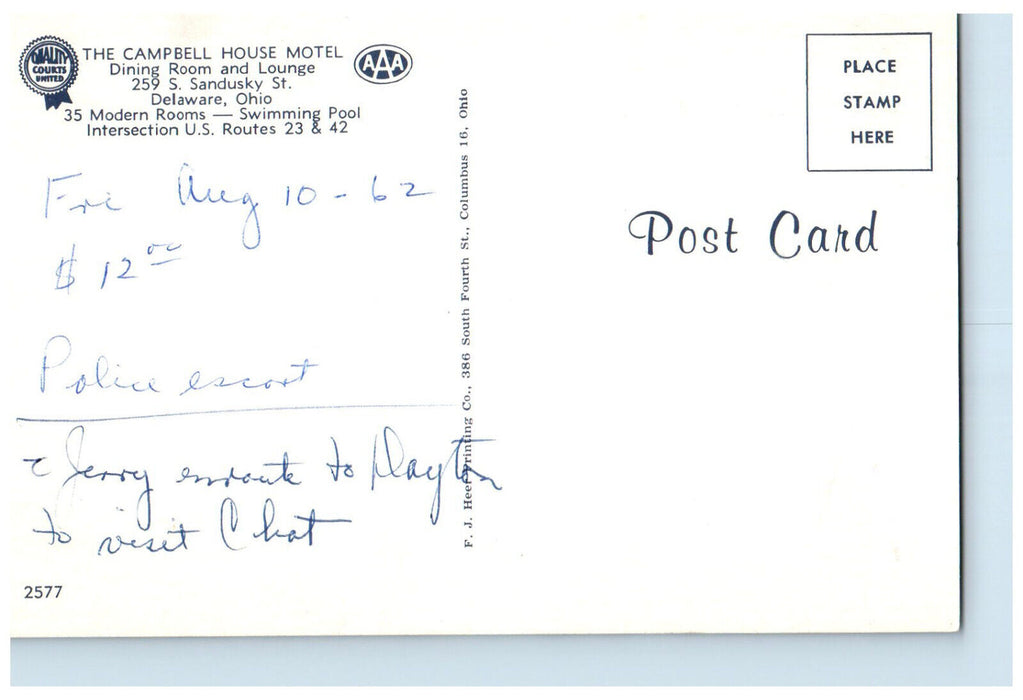 QUALITY
COURTS
UNITED
THE CAMPBELL HOUSE MOTEL
Dining Room and Lounge
259 S. Sandusky St.
Delaware, Ohio
35 Modern Rooms — Swimming Pool
Intersection U.S. Routes 23 & 42
AAA
Fri Aug 10 - 62
$ 12 00
Police escort
c Jerry enroute to Dayton
to visit Chat
2577
F. J. Heer Printing Co., 386 South Fourth St., Columbus 16, Ohio
PLACE
STAMP
HERE
Post Card